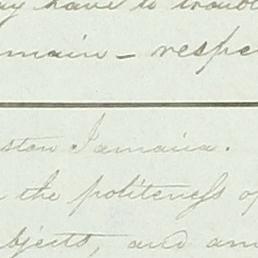 ay have to troubl
main – respec
ston Jamaica.
the politeness of
bjects, and am